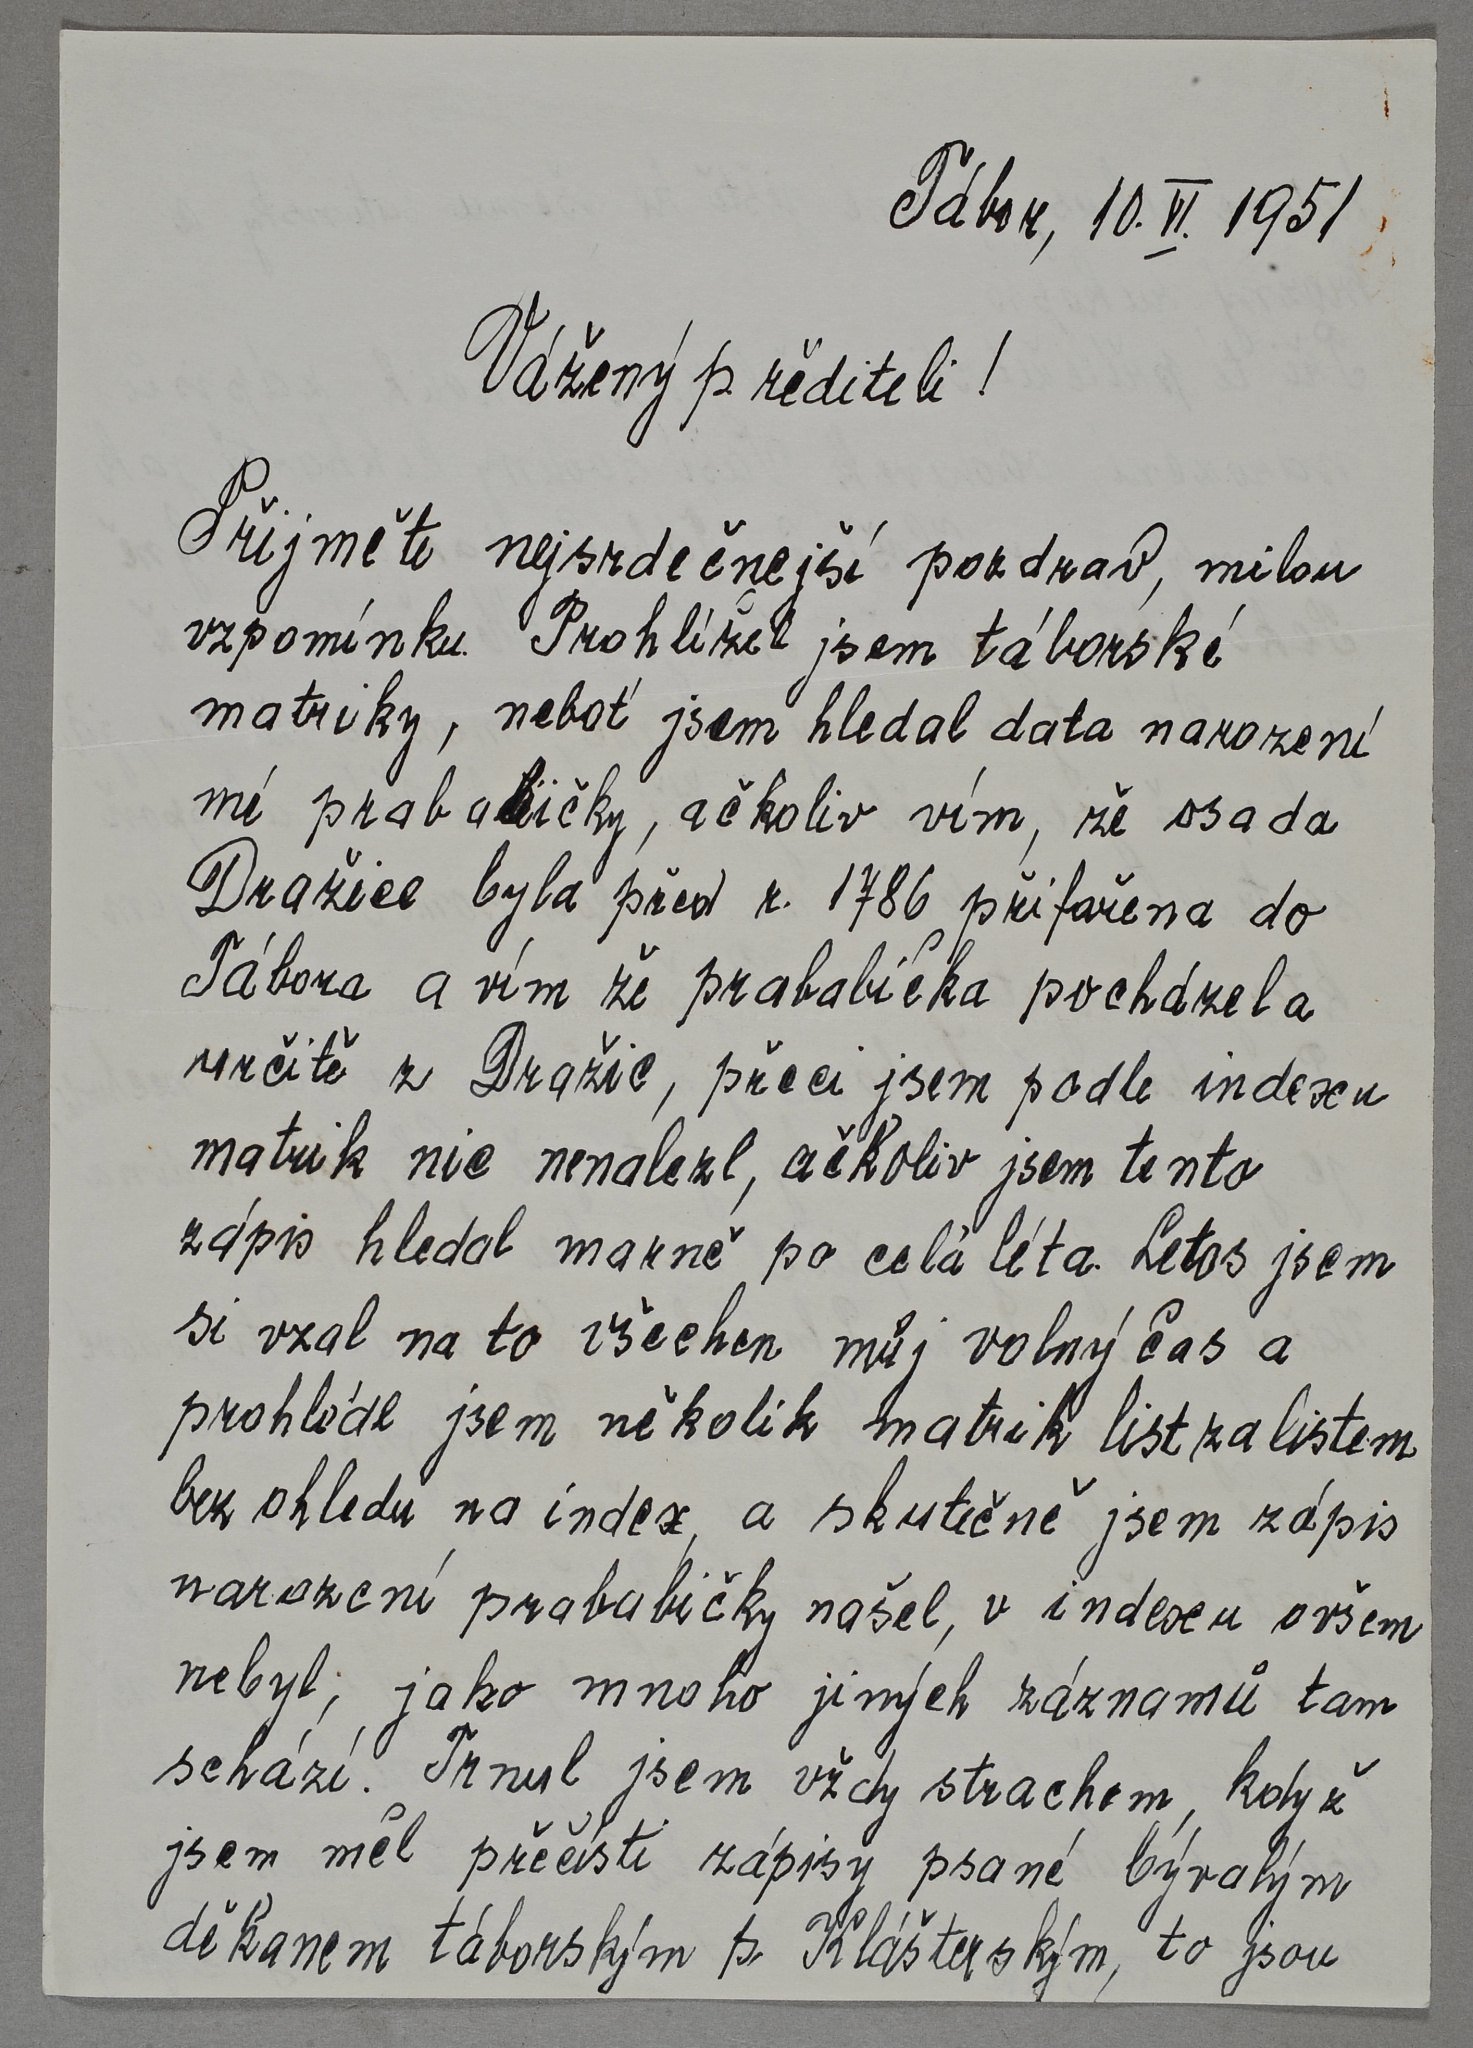 Tábor, 10. VI. 1951
Vážený p. řediteli!
Přijměte nejsrdečnejší pozdrav, milou
vzpomínku. Prohlížel jsem táborské
matriky, neboť jsem hledal data narození
mé prababičky, ačkoliv vím, že osada
Dražice byla před r. 1786 přifařena do
Tábora a vím že prababička pocházela
určitě z Dražic, přeci jsem podle indexu
matrik nic nenalezl, ačkoliv jsem tento
zápis hledal marně po celá léta. Letos jsem
si vzal na to všechen můj volný čas a
prohlédl jsem několik matrik list za listem
bez ohledu na index, a skutečně jsem zápis
narození prababičky našel, v indexu ovšem
nebyl, jako mnoho jiných záznamů tam
schází. Trnul jsem vždy strachem, když
jsem měl přečísti zápisy psané bývalým
děkanem táborským p. Klášterským, to jsou